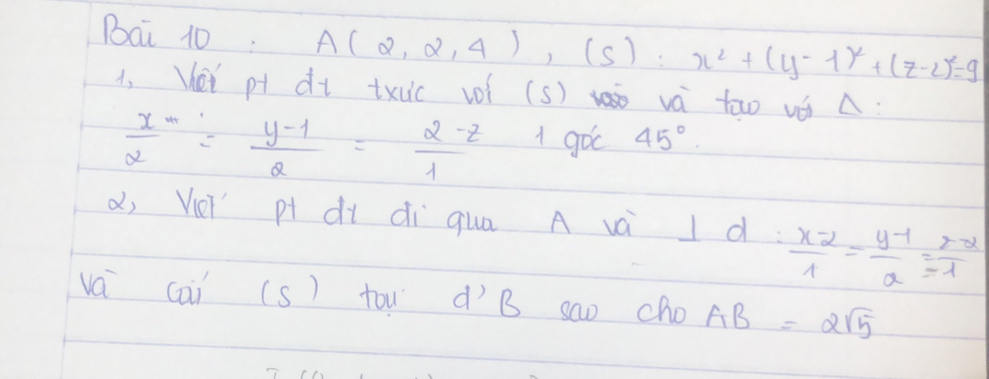 Bài 10 : A(2,2,4), (S): x² + (y-1)² + (z-2)² = 9
1, Viết pt đt txúc với (S) và tạo với Δ:
x/2 = y-1/2 = 2-z/1 1 góc 45°.
2, Viết pt đt đi qua A và ⊥ d : x-2/1 = y-1/2 = z-2/-1
và cắt (S) tại đ' B sao cho AB = 2√5